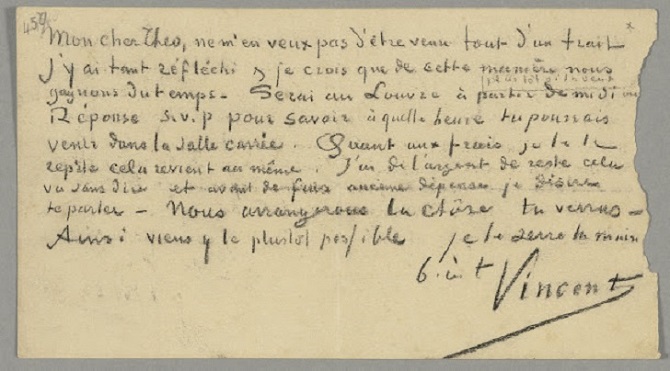 459
Mon cher Theo, ne m'en veux pas d'être venu tout d'un trait
J'y ai tant réfléchi & je crois que de cette manière nous
gagnons du temps. Serai au Louvre à partir de midi ou
plus tôt si tu veux
Réponse s.v.p pour savoir à quelle heure tu pourrais
venir dans la salle carrée. Quant aux frais je te le
repète cela revient au même. J'ai de l'argent de reste cela
va sans dire et avant de faire aucune dépense je désire
te parler – Nous arrangerons la chôse tu verras –
Ainsi viens y le plustot possible je te serre la main
b. à t
Vincent